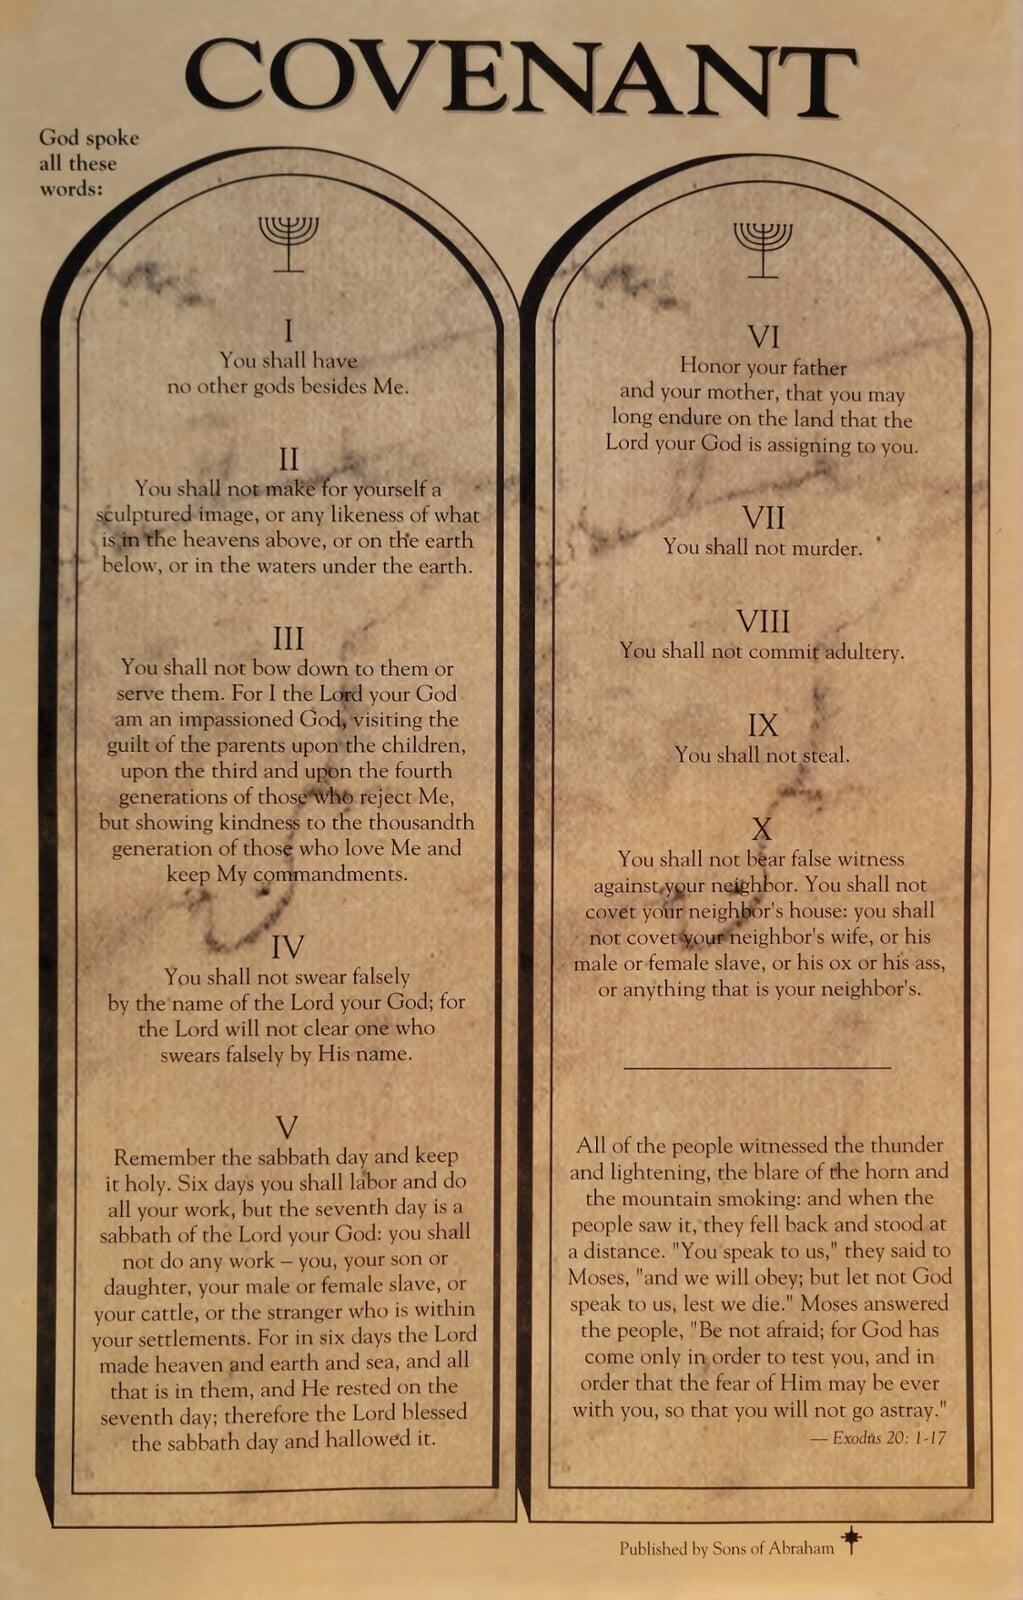 COVENANT
God spoke
all these
words:
I
You shall have
no other gods besides Me.
II
You shall not make for yourself a
sculptured image, or any likeness of what
is in the heavens above, or on the earth
below, or in the waters under the earth.
III
You shall not bow down to them or
serve them. For I the Lord your God
am an impassioned God, visiting the
guilt of the parents upon the children,
upon the third and upon the fourth
generations of those who reject Me,
but showing kindness to the thousandth
generation of those who love Me and
keep My commandments.
IV
You shall not swear falsely
by the name of the Lord your God; for
the Lord will not clear one who
swears falsely by His name.
V
Remember the sabbath day and keep
it holy. Six days you shall labor and do
all your work, but the seventh day is a
sabbath of the Lord your God: you shall
not do any work – you, your son or
daughter, your male or female slave, or
your cattle, or the stranger who is within
your settlements. For in six days the Lord
made heaven and earth and sea, and all
that is in them, and He rested on the
seventh day; therefore the Lord blessed
the sabbath day and hallowed it.
VI
Honor your father
and your mother, that you may
long endure on the land that the
Lord your God is assigning to you.
VII
You shall not murder.
VIII
You shall not commit adultery.
IX
You shall not steal.
X
You shall not bear false witness
against your neighbor. You shall not
covet your neighbor's house: you shall
not covet your neighbor's wife, or his
male or female slave, or his ox or his ass,
or anything that is your neighbor's.
All of the people witnessed the thunder
and lightening, the blare of the horn and
the mountain smoking: and when the
people saw it, they fell back and stood at
a distance. "You speak to us," they said to
Moses, "and we will obey; but let not God
speak to us, lest we die." Moses answered
the people, "Be not afraid; for God has
come only in order to test you, and in
order that the fear of Him may be ever
with you, so that you will not go astray."
— Exodus 20: 1-17
Published by Sons of Abraham